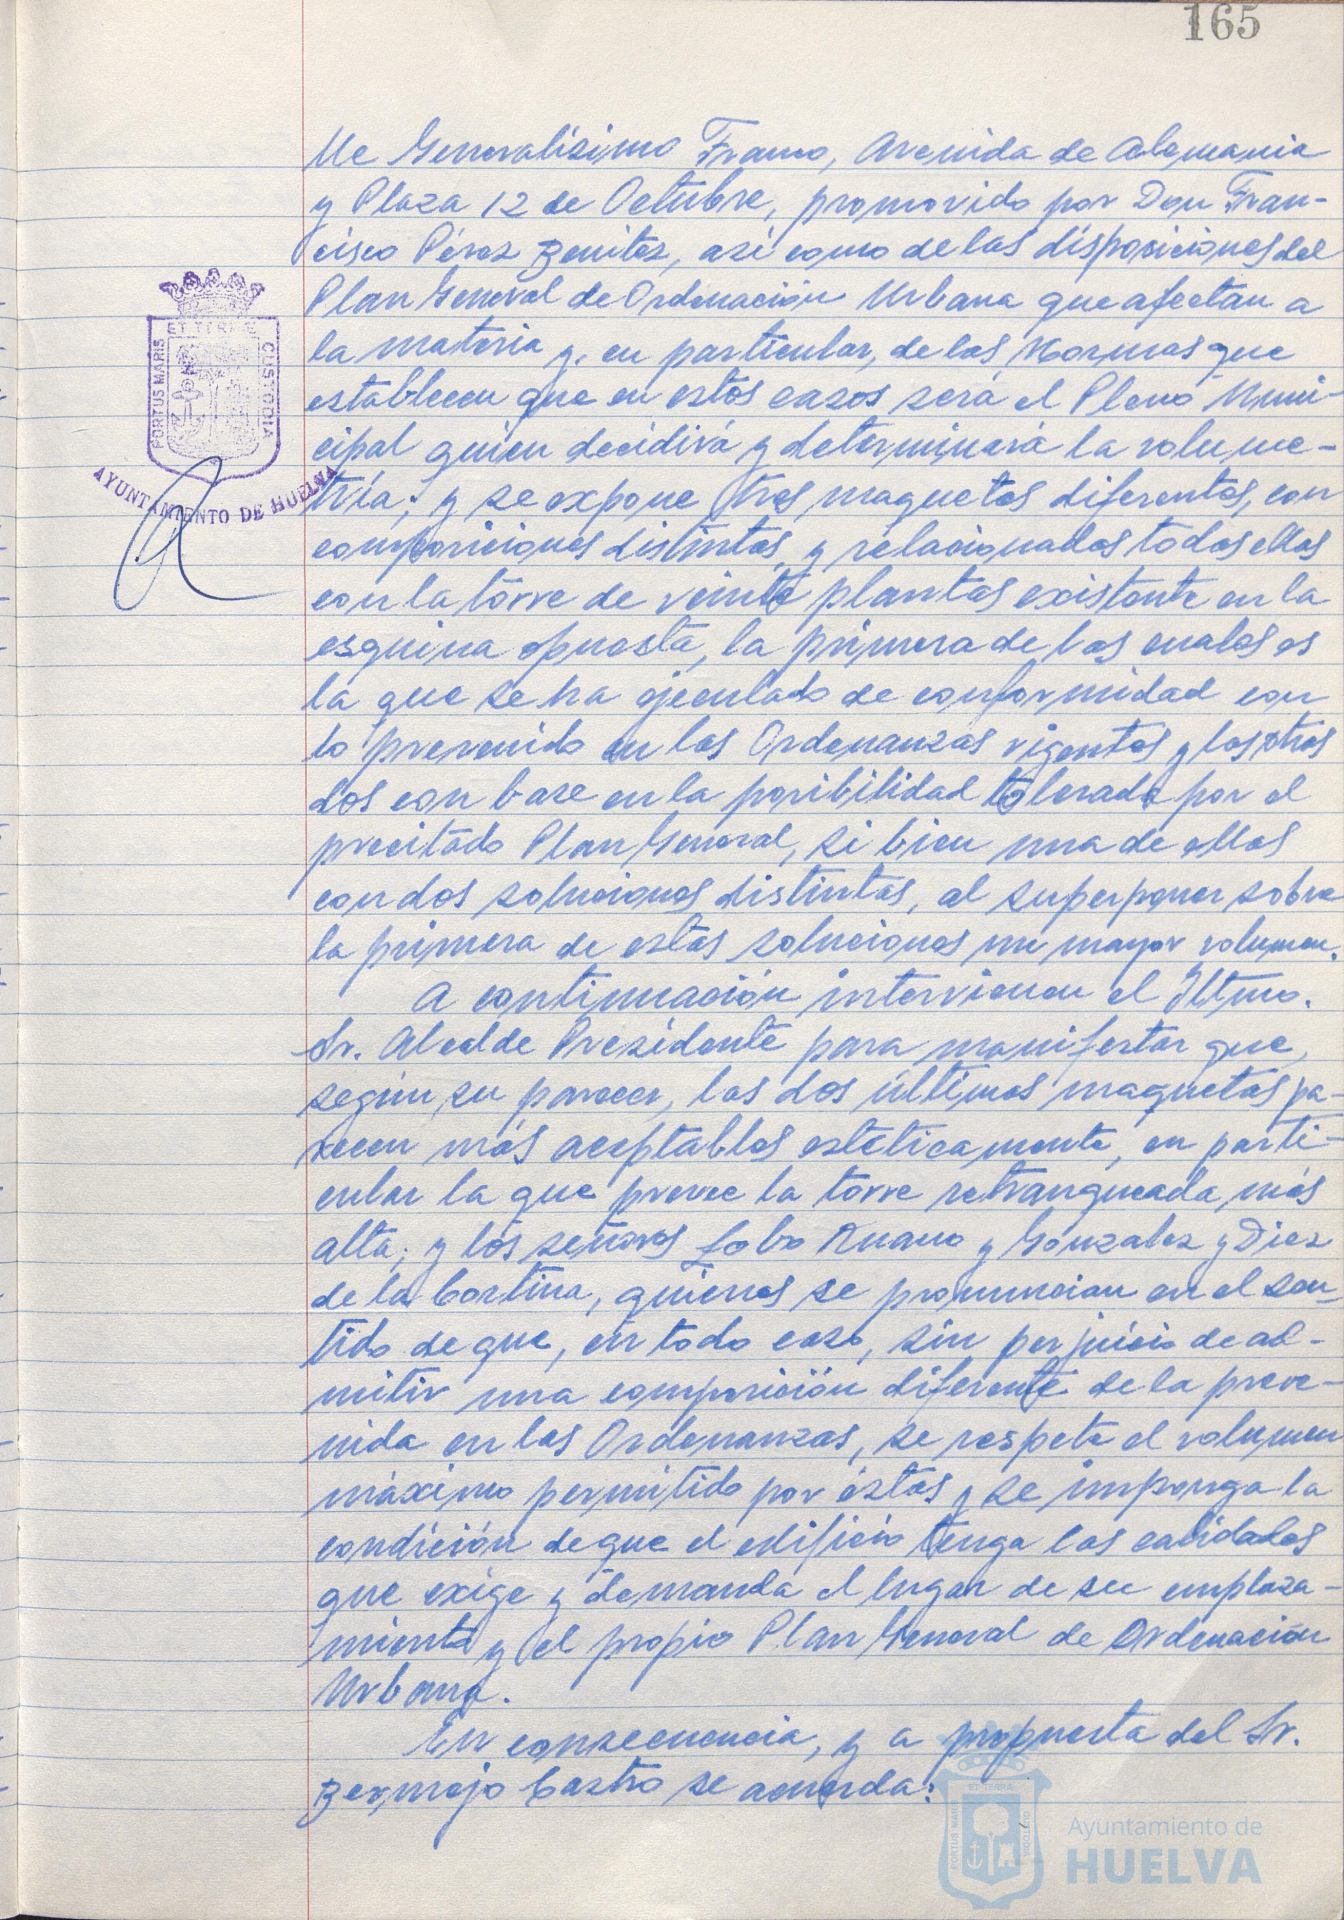 165
lle Generalísimo Franco, Avenida de Alemania
y Plaza 12 de Octubre, promovido por Don Fran-
cisco Pérez Benitez, así como de las disposiciones del
Plan General de Ordenación Urbana que afectan a
la materia y, en particular, de las Normas que
establecen que en estos casos será el Pleno Muni-
cipal quien decidirá y determinará la volume-
tría; y se expone tres maquetas diferentes, con
composiciones distintas y relacionadas todas ellas
con la torre de veinte plantas existente en la
esquina opuesta, la primera de las cuales es
la que se ha ejecutado de conformidad con
lo prevenido en las Ordenanzas vigentes y las otras
dos con base en la posibilidad tolerada por el
precitado Plan General, si bien una de ellas
con dos soluciones distintas, al superponer sobre
la primera de estas soluciones un mayor volumen.
A continuación intervienen el Iltmo.
Sr. Alcalde Presidente para manifestar que,
según su parecer, las dos últimas maquetas pa-
recen más aceptables estéticamente, en parti-
cular la que prevee la torre retranqueada más
alta; y los señores Lobo Ruano y González y Diez
de la Cortina, quienes se pronuncian en el sen-
tido de que, en todo caso, sin perjuicio de ad-
mitir una composición diferente de la preve-
nida en las Ordenanzas, se respete el volumen
máximo permitido por éstas y se imponga la
condición de que el edificio tenga las calidades
que exige y demanda el lugar de su emplaza-
miento y el propio Plan General de Ordenación
Urbana.
En consecuencia, y a propuesta del Sr.
Bermejo Castro se acuerda:
PORTUS MARIS
ET TERRAE
CUSTODIA
AYUNTAMIENTO DE HUELVA
PORTUS MARIS
ET TERRA
CUSTODIA
Ayuntamiento de
HUELVA